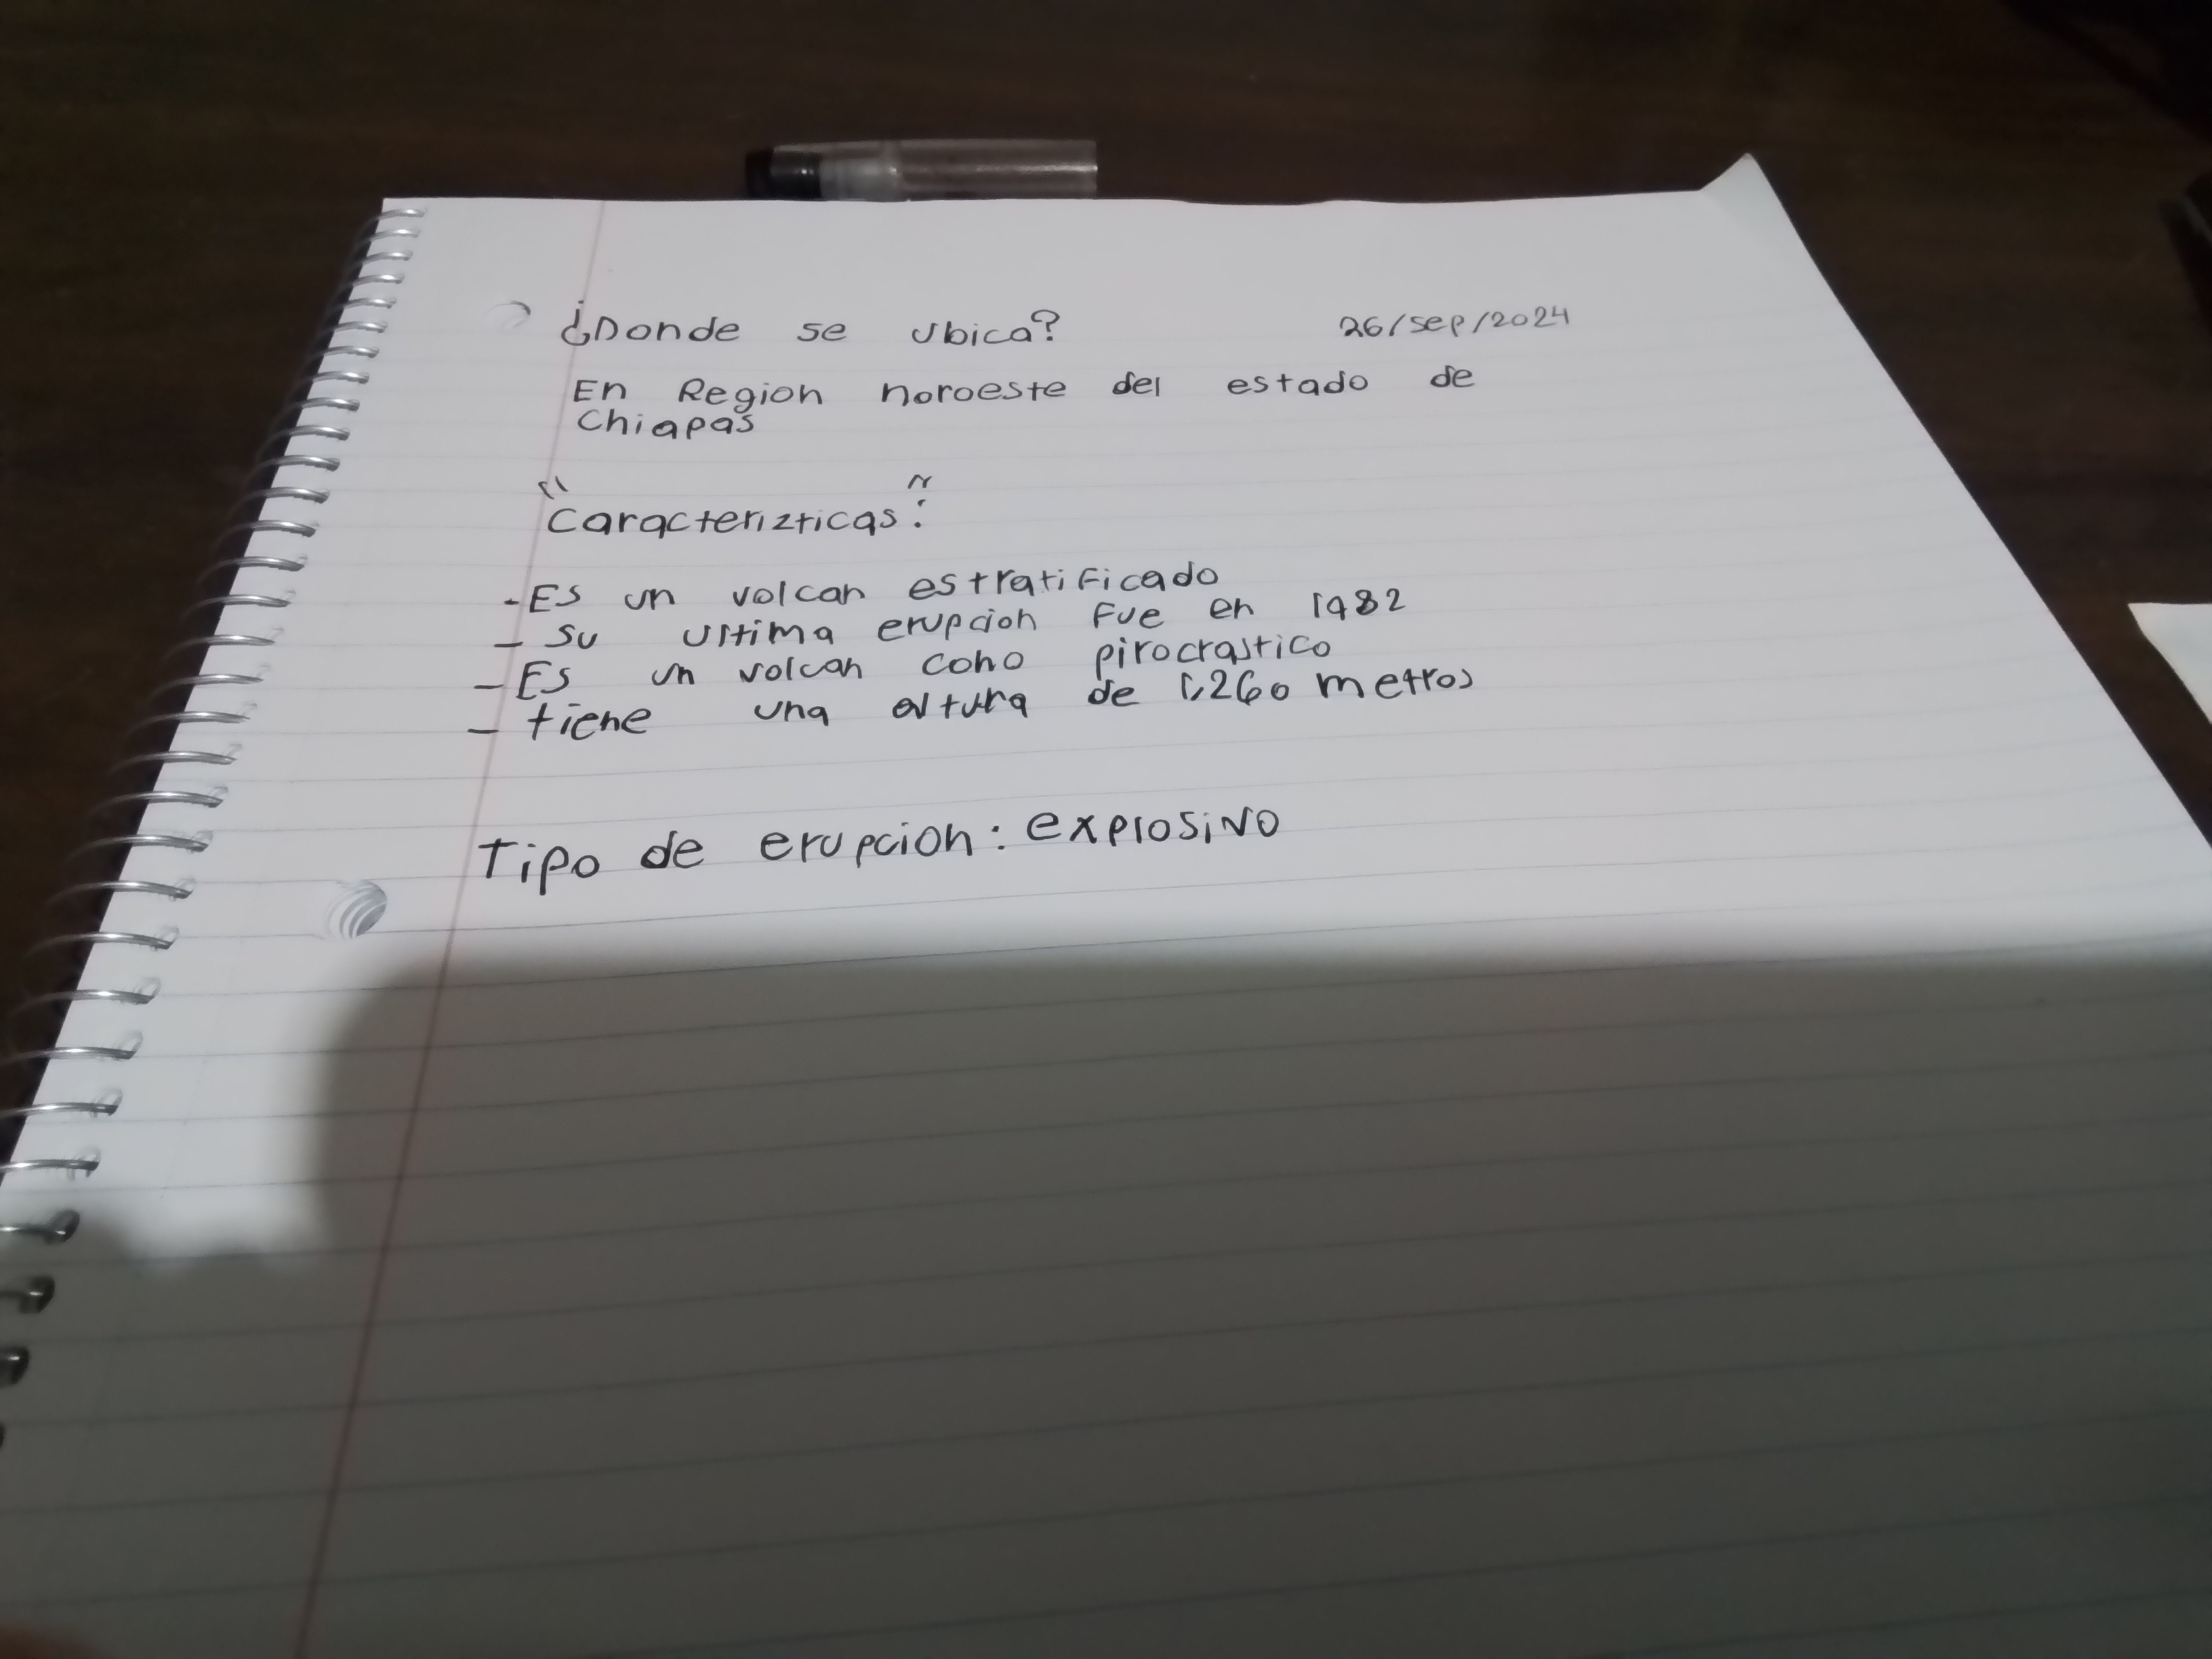 ¿Donde se ubica? 26/sep/2024
En Region noroeste del estado de
Chiapas
"Caracterizticas:"
-Es un volcan estratificado
- su ultima erupcion fue en 1982
- Es un volcan cono pirocrastico
- tiene una altura de 1,260 metros
Tipo de erupcion: explosivo